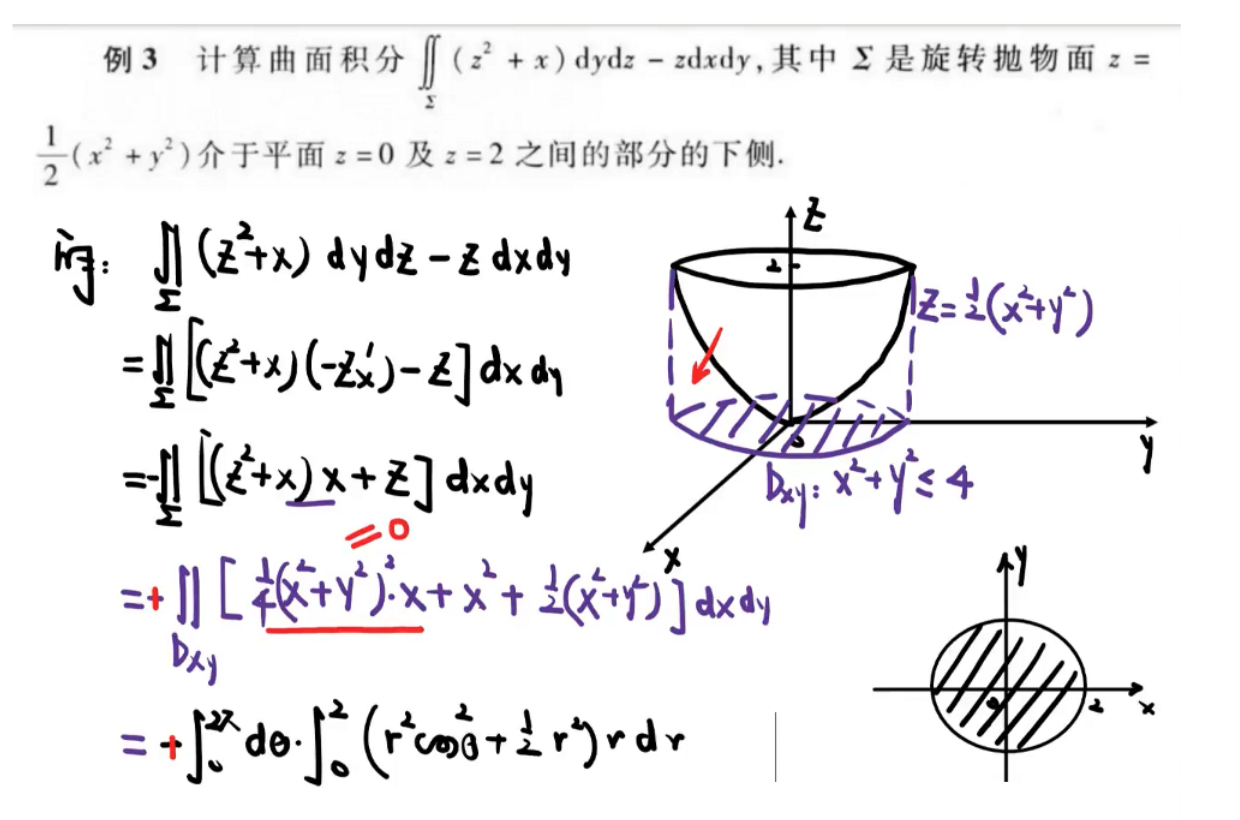 例 3 计算曲面积分 ∬_Σ (z² + x)dydz − zdxdy,其中 Σ 是旋转抛物面 z =
1/2(x² + y²)介于平面 z = 0 及 z = 2 之间的部分的下侧.
解: ∬_Σ (z²+x) dydz − z dxdy
= ∬_Σ [(z²+x)(−z'x)−z] dxdy
= −∬_Σ [(z²+x)x+z] dxdy
=0
= + ∬_Dxy [1/4(x²+y²)²·x + x² + 1/2(x²+y²)] dxdy
= + ∫₀^2π dθ·∫₀² (r²cos²θ + 1/2 r²) r dr
z
2
z=1/2(x²+y²)
0
y
Dxy: x²+y² ≤ 4
x
y
0
2
x